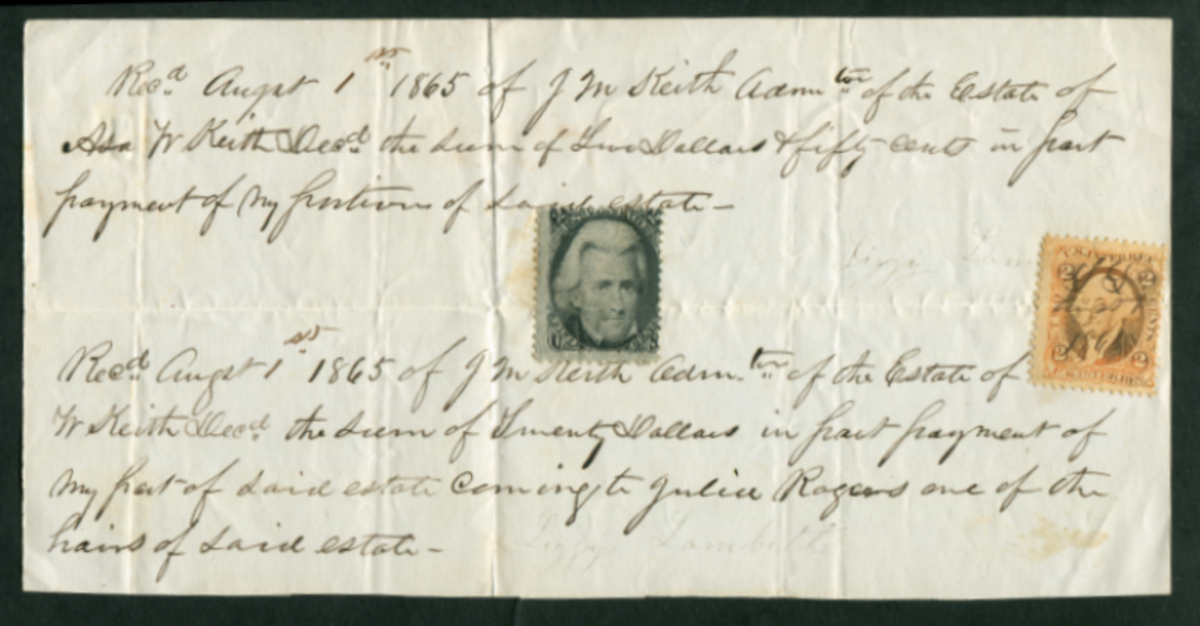 Recd. August 1st 1865 of J M Keith Admtor of the Estate of
Asa W Keith Decd. the sum of Two Dollars & fifty cents in part
payment of my portion of Said estate -
Lizzy Lam
Recd. August 1st 1865 of J M Keith Adm.tor of the Estate of
W Keith Decd. the sum of Twenty Dollars in part payment of
my part of Said estate Coming to Julia Rogers one of the
hairs of Said estate -
Lizzy Lambeth
U.S. INTER. REV.
2 2
2 2
U.S. INTER. REV.